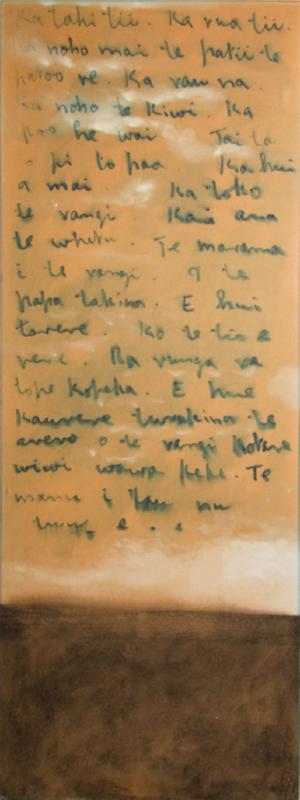 Ka tahi tii. Ka rua tii.
Ka noho mai te patii te
patoo re. Ka rau na
Ka noho te Kiwi. Ka
poo he wai Tai ta
pi to paa Ka hui
a mai Ka toko
te rangi Kaia ana
te whetu. Te marama
i te rangi. O te
papa takina. E hui
tarere. Ko te tio e
rere. Ra runga ra
tope Kopeka. E hue
Kaurere turakina te
arero o te rangi
wiwi wawa heke. Te
manu i tau
e . e